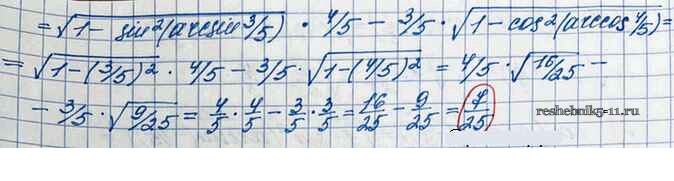 = √(1 - sin²(arcsin 3/5)) · 4/5 - 3/5 · √(1 - cos²(arccos 4/5)) =
= √(1 - (3/5)²) · 4/5 - 3/5 · √(1 - (4/5)²) = 4/5 · √(16/25) -
- 3/5 · √(9/25) = 4/5 · 4/5 - 3/5 · 3/5 = 16/25 - 9/25 = 7/25
reshebnik5-11.ru